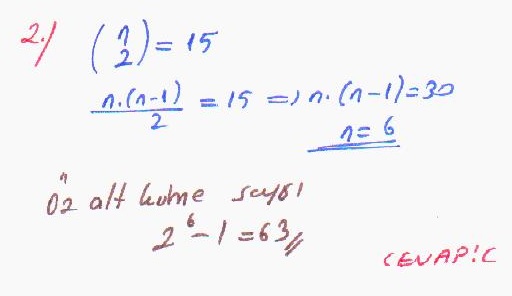 2.) (n 2) = 15
n.(n-1)/2 = 15 => n.(n-1)=30
n= 6
Öz alt küme sayısı
2^6 - 1 = 63//
CEVAP:C